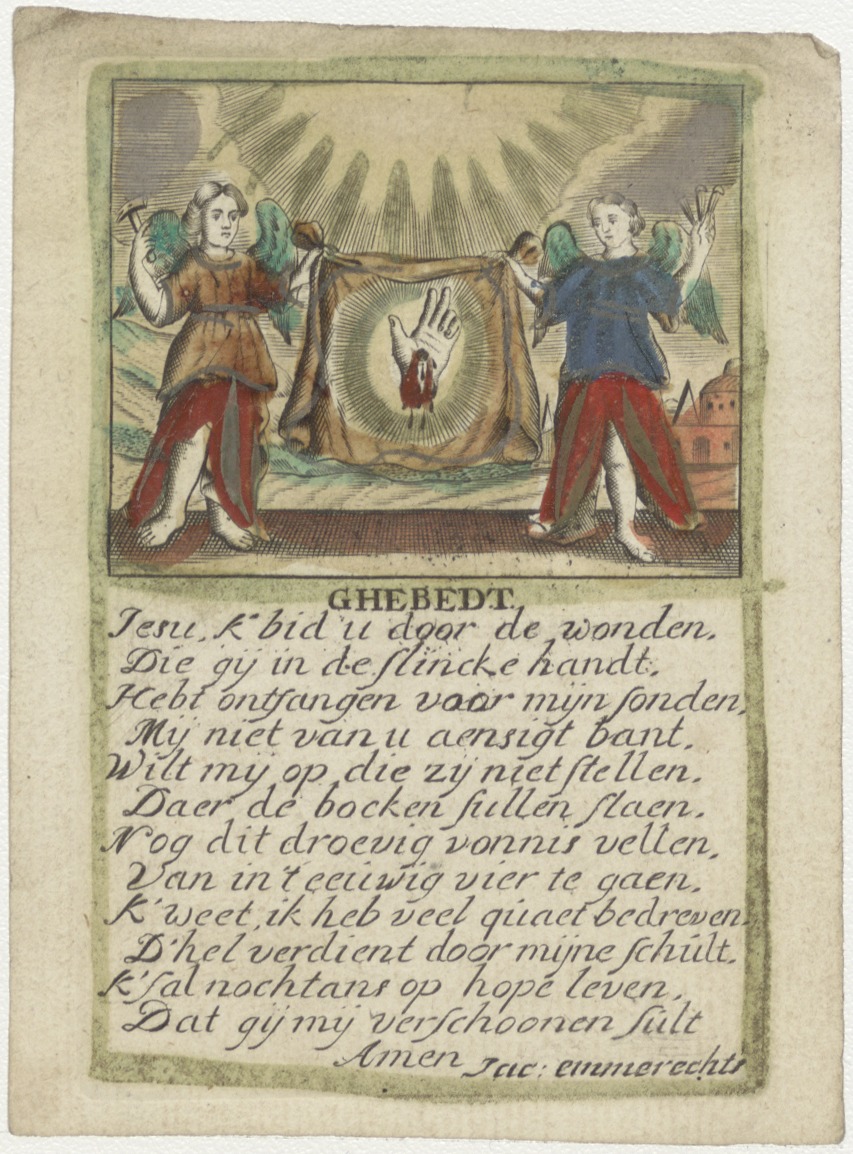 GHEBEDT.
Jesu, k'bid u door de wonden.
Die gij in de slincke handt.
Hebt ontfangen voor mijn sonden,
Mij niet van u aensigt bant.
Wilt mij op die zij niet stellen.
Daer de bocken sullen staen.
Nog dit droevig vonnis vellen,
Van in't eeuwig vier te gaen.
K'weet, ik heb veel quaet bedreven.
D'hel verdient door mijne schult.
K'sal nochtans op hope leven.
Dat gij mij verschoonen sult
Amen Jac: emmerechts